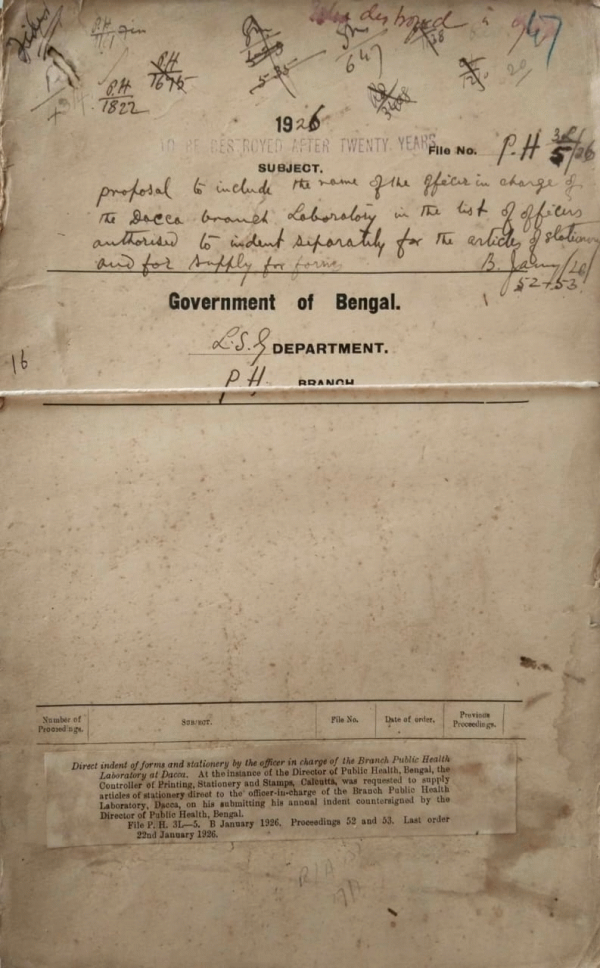 to be destroyed in
P.H
1822
P.H
1675
647
1926
TO BE DESTROYED AFTER TWENTY YEARS
File No. P.H 3L/5/26
SUBJECT.
proposal to include the name of the officer in charge of
the Dacca branch Laboratory in the list of officers
authorised to indent separately for the articles of stationery
and for supply for forms
B. Jany/26/
52+53
Government of Bengal.
L.S.G DEPARTMENT.
16
P H BRANCH
Number of Proceedings. SUBJECT. File No. Date of order. Previous Proceedings.
Direct indent of forms and stationery by the officer in charge of the Branch Public Health
Laboratory at Dacca. At the instance of the Director of Public Health, Bengal, the
Controller of Printing, Stationery and Stamps, Calcutta, was requested to supply
articles of stationery direct to the officer-in-charge of the Branch Public Health
Laboratory, Dacca, on his submitting his annual indent countersigned by the
Director of Public Health, Bengal.
File P. H. 3L—5, B January 1926, Proceedings 52 and 53. Last order
22nd January 1926.